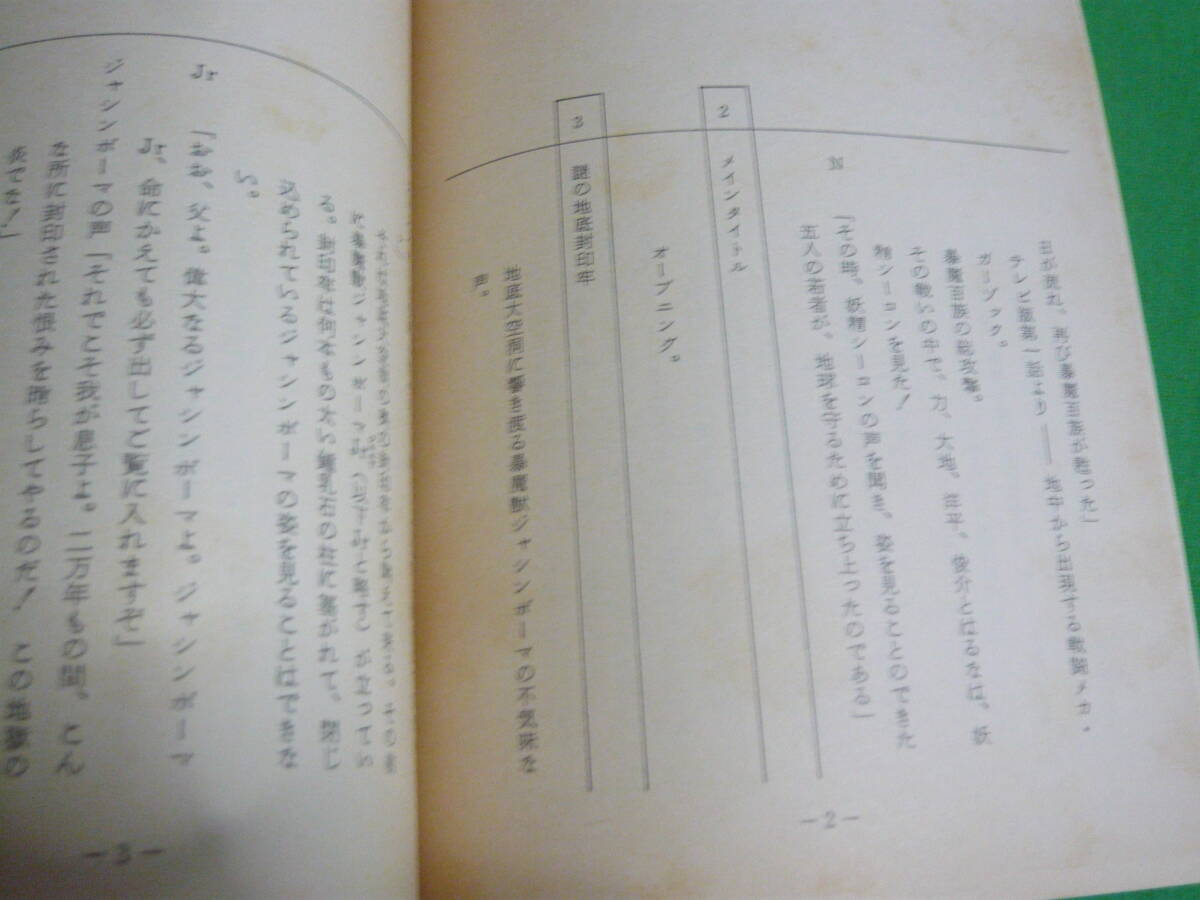 日が流れ、再び暴魔百族が甦った」
テレビ版第一話より――地中から出現する戦闘メカ・
ガーゾック。
暴魔百族の総攻撃。
その戦いの中で、力、大地、洋平、俊介とはるなは、妖
精シーロンを見た！
N
「その時、妖精シーロンの声を聞き、姿を見ることのできた
五人の若者が、地球を守るために立ち上ったのである」
2 メインタイトル
オープニング。
3 謎の地底封印牢
地底大空洞に響き渡る暴魔獣ジャシンボーマの不気味な
声。
―2―
に暴魔獣ジャシンボーマJr.（以下Jr.と略す）が立ってい
る。封印牢は何本もの太い鍾乳石の柱に塞がれて、閉じ
込められているジャシンボーマの姿を見ることはできな
い。
Jr
「おお、父よ。偉大なるジャシンボーマよ。ジャシンボーマ
Jr、命にかえても必ず出してご覧に入れますぞ」
ジャシンボーマの声「それでこそ我が息子よ。二万年もの間、こん
な所に封印された恨みを晴らしてやるのだ！この地獄の
炎でな！」
―3―